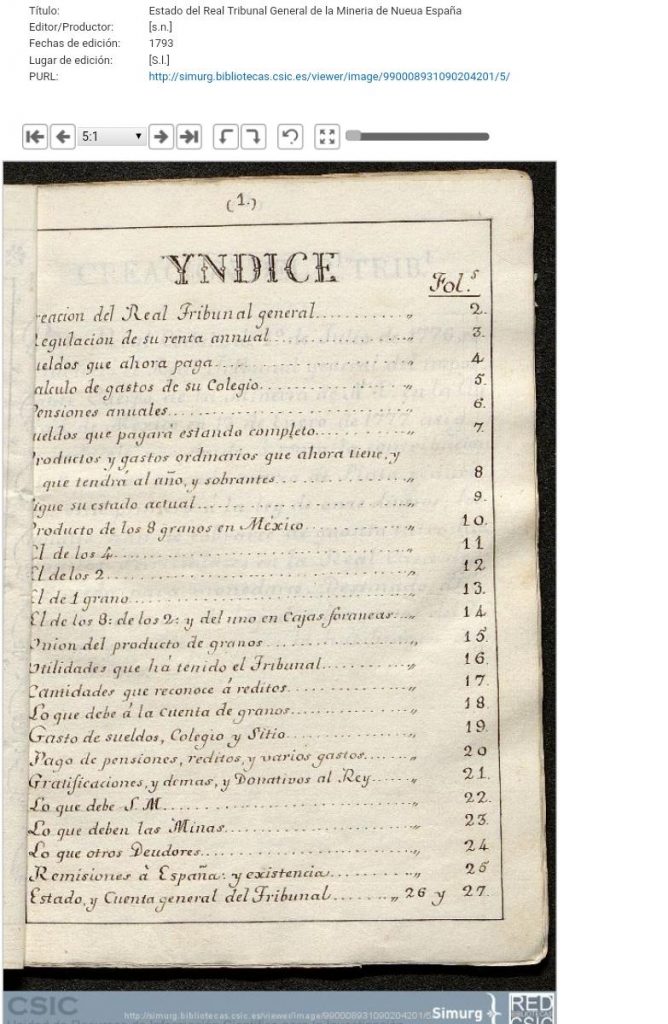 Título: Estado del Real Tribunal General de la Mineria de Nueua España
Editor/Productor: [s.n.]
Fechas de edición: 1793
Lugar de edición: [S.l.]
PURL: http://simurg.bibliotecas.csic.es/viewer/image/990008931090204201/5/
5:1
(1.)
YNDICE
Fol.s
reacion del Real Tribunal general „ 2.
egulacion de su renta annual „ 3.
ueldos que ahora paga „ 4
alculo de gastos de su Colegio „ 5.
Pensiones anuales „ 6.
ueldos que pagará estando completo „ 7
Productos y gastos ordinarios que ahora tiene, y
que tendrá al año, y sobrantes „ 8
igue su estado actual „ 9.
Producto de los 8 granos en México „ 10.
El de los 4 „ 11
El de los 2 „ 12
El de 1 grano „ 13.
El de los 8: de los 2: y del uno en Cajas foraneas „ 14
Union del producto de granos „ 15.
Utilidades que há tenido el Tribunal „ 16.
Cantidades que reconoce á reditos „ 17.
Lo que debe á la Cuenta de granos „ 18.
Gasto de sueldos, Colegio y Sitio „ 19.
Pago de pensiones, reditos, y varios gastos „ 20
Gratificaciones, y demas, y Donativos al Rey „ 21.
Lo que debe S. M. „ 22.
Lo que deben las Minas „ 23.
Lo que otros Deudores „ 24
Remisiones à España: y existencia „ 25
Estado, y Cuenta general del Tribunal „ 26 y 27.
CSIC
http://simurg.bibliotecas.csic.es/viewer/image/990008931090204201/5
Simurg
RED
CSIC